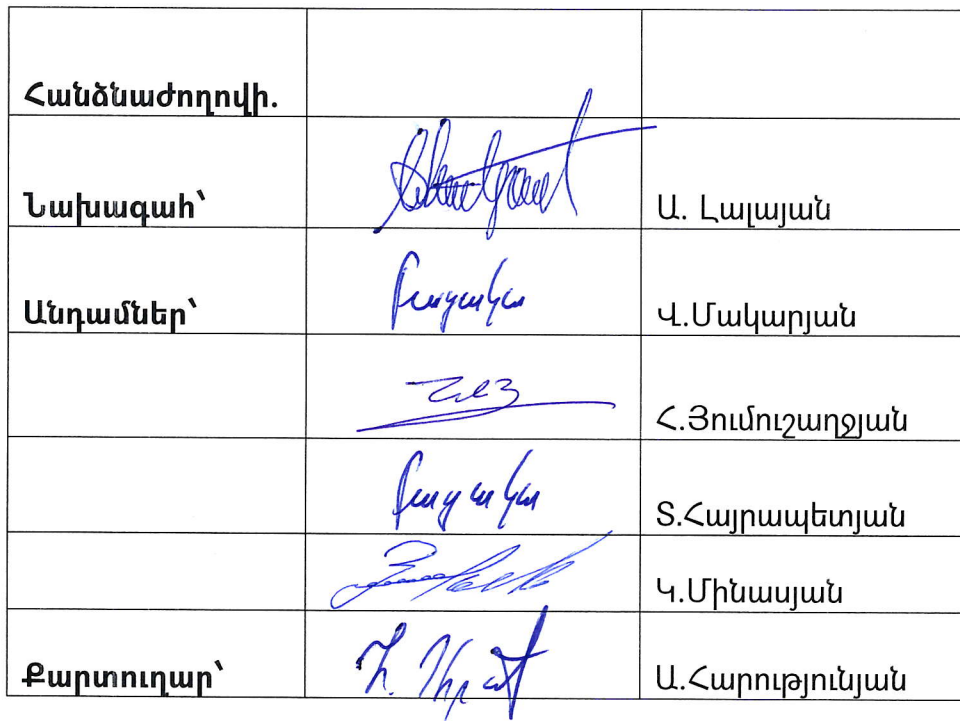 Հանձնաժողովի.
Նախագահ՝ Ա. Լալայան
Անդամներ՝ բացակա Վ.Մակարյան
Հ.Յումուշաղջյան
բացակա Տ.Հայրապետյան
Կ.Մինասյան
Քարտուղար՝ Ա.Հարությունյան